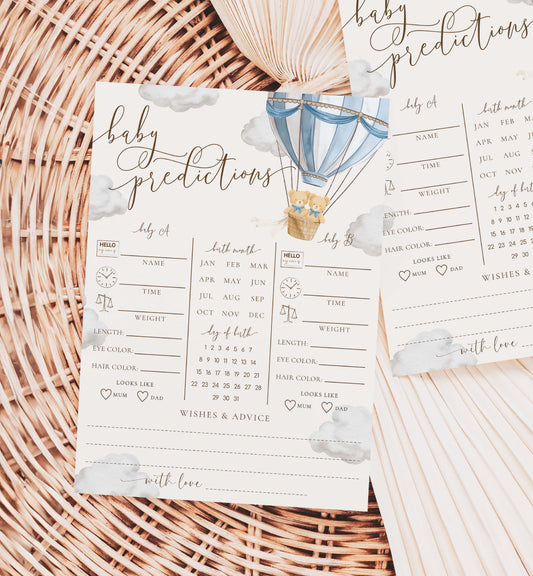 baby
predictions
baby A
birth month
baby B
HELLO
HELLO
NAME
JAN FEB MAR
NAME
APR MAY JUN
TIME
JUL AUG SEP
TIME
OCT NOV DEC
WEIGHT
day of birth
WEIGHT
LENGTH:
1 2 3 4 5 6 7
LENGTH:
8 9 10 11 12 13 14
EYE COLOR:
15 16 17 18 19 20 21
EYE COLOR:
HAIR COLOR:
22 23 24 25 26 27 28
HAIR COLOR:
29 30 31
LOOKS LIKE
LOOKS LIKE
MUM DAD
MUM DAD
WISHES & ADVICE
with love
baby
predictions
baby A
birth month
NAME
JAN FEB
APR MAY
TIME
JUL AUG
OCT NOV
WEIGHT
day of birth
LENGTH:
1 2 3 4 5
EYE COLOR:
8 9 10 11 12
15 16 17 18 19
HAIR COLOR:
22 23 24 25 26
LOOKS LIKE
29 30 31
MUM DAD
WISHES &
with love